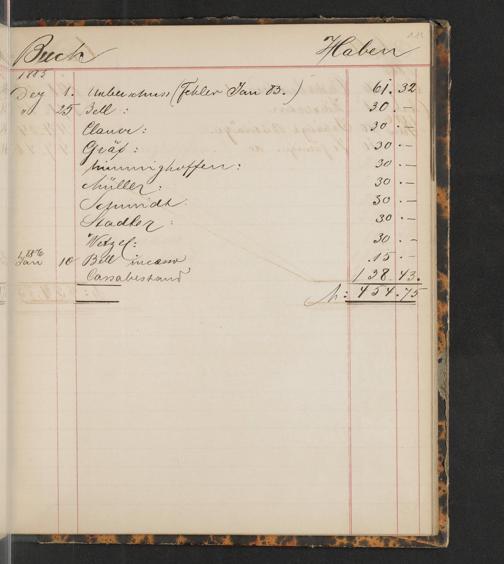 Buch Haben
1885
Dez 1. Ueberschuss (Fehler Jan 83.) 61. 32
" 25 Bell: 30. —
Clauer: 30. —
Gräf: 30. —
Minninghoffen: 30. —
Müller: 30. —
Schmidt: 30. —
Stadler: 30. —
Wetzel: 30. —
1886
Jan 10 Bell incasso 15. —
Cassabestand 138. 43.
M: 454. 75